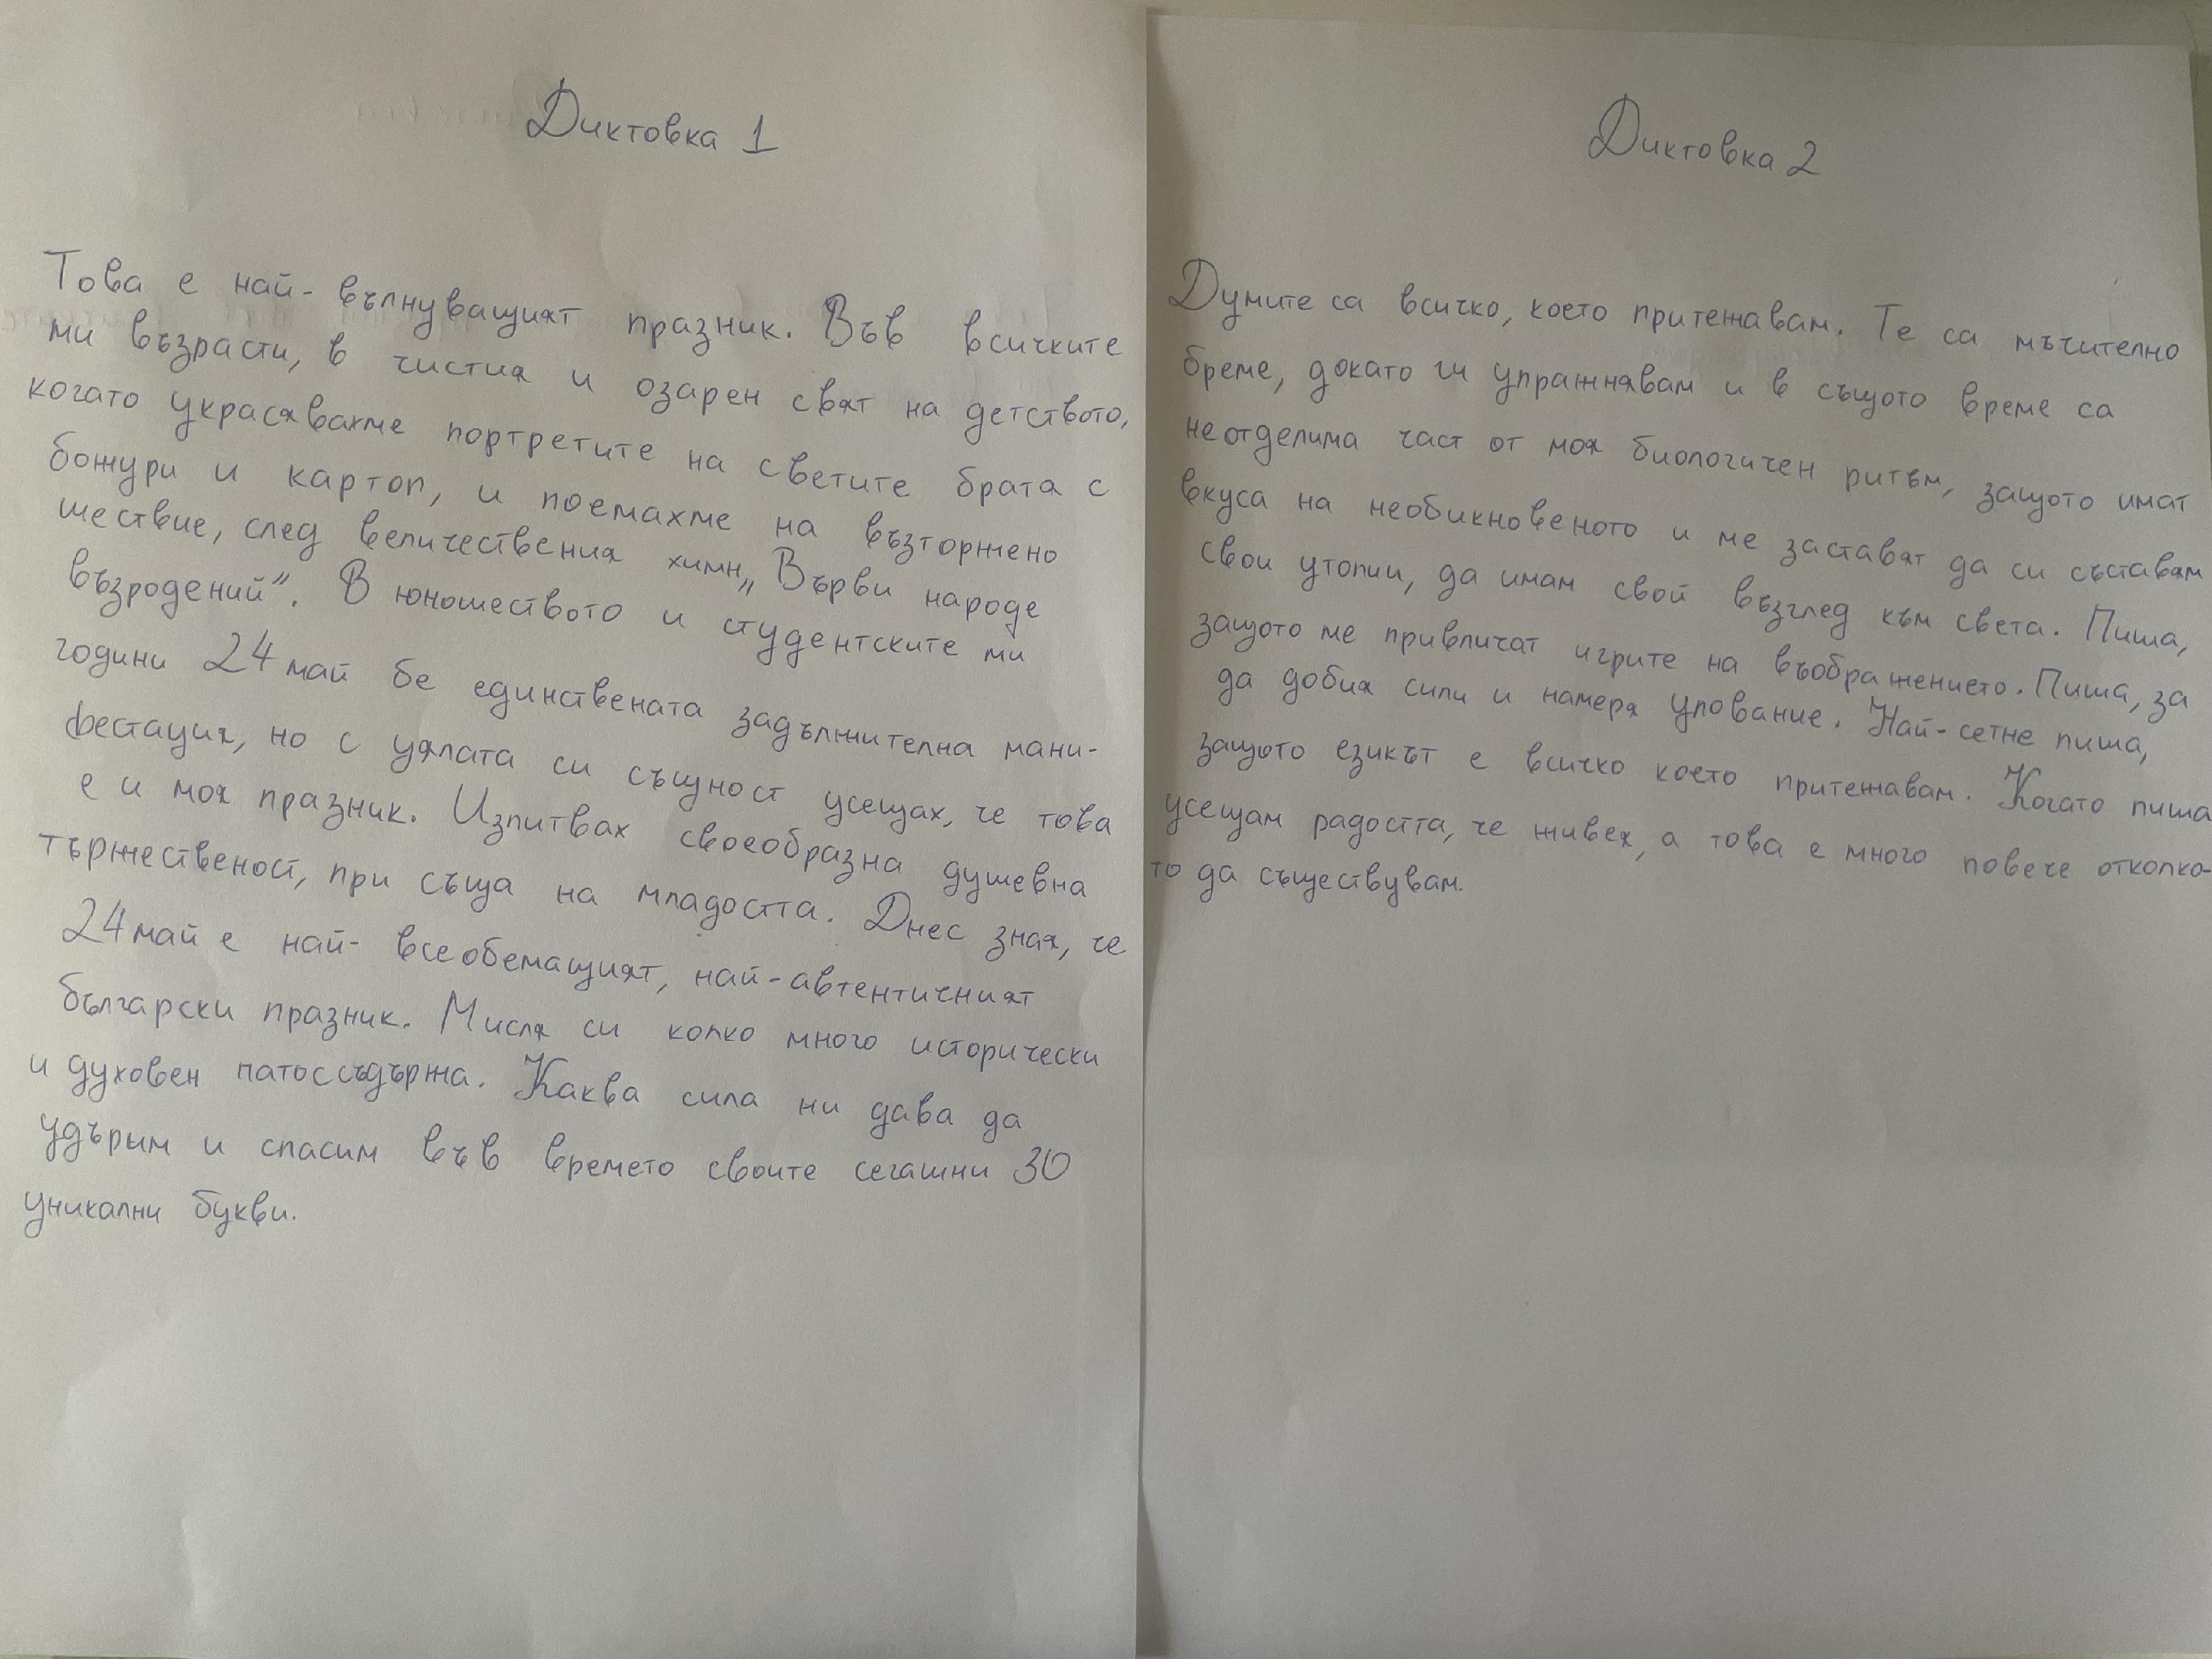 Диктовка 1
Това е най-вълнуващият празник. Във всичките
ми възрасти, в чистия и озарен свят на детството,
когато украсявахме портретите на светите братя с
божури и картоп, и поемахме на възторжено
шествие, след величествения химн „Върви народе
възродений". В юношеството и студентските ми
години 24 май бе единствената задължителна мани-
фестация, но с цялата си същност усещах, че това
е и моя празник. Изпитвах своеобразна душевна
тържественост, при съща на младостта. Днес зная, че
24 май е най-всеобемащият, най-автентичният
български празник. Мисля си колко много исторически
и духовен патос съдържа. Каква сила ни дава да
удърим и спасим във времето своите сегашни 30
уникални букви.
Диктовка 2
Думите са всичко, което притежавам. Те са мъчително
бреме, докато ги упражнявам и в същото време са
неотделима част от моя биологичен ритъм, защото имат
вкуса на необикновеното и ме заставят да си съставям
свои утопии, да имам свой възглед към света. Пиша,
защото ме привличат игрите на въображението. Пиша, за
да добия сили и намеря упование. Най-сетне пиша,
защото езикът е всичко което притежавам. Когато пиша
усещам радостта, че живея, а това е много повече отколко-
то да съществувам.